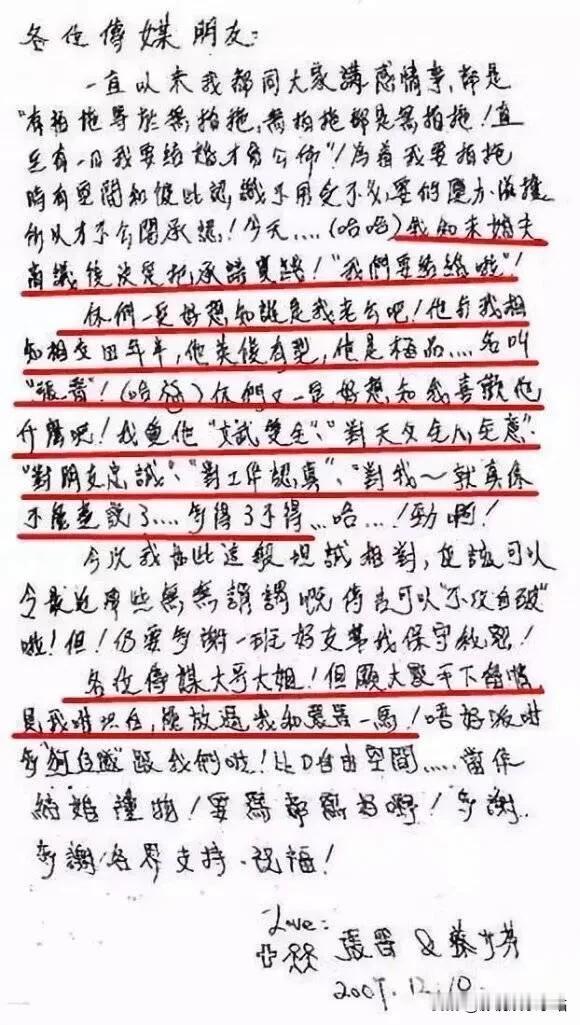 各位傳媒朋友：
一直以來我都同大家講感情事，都是
"有拍拖等於無拍拖，無拍拖都是無拍拖！直
至有一日我要結婚才會公佈"！為着我要拍拖
時有空間和彼此認識不用受不必要的壓力
所以才不公開承認！今天....(哈哈)我和未婚夫
商議後決定把承諾實踐！"我們要結婚啦"！
你們一定好想知誰是我老公吧！他和我相
知相交四年半，他英俊有型，他是極品....名叫
"張晉"！(哈哈)你們又一定好想知我喜歡他
什麼吧！我兔他"文武雙全"、"對父母
"對朋友忠誠"、"對工作認真"、"對我～就真係
不能盡說了....多得了不得...哈...！勁啊！
今次我 此這般坦誠相對，應該可以
令最近那些無無謂謂嘅傳言可以"不攻自破"
啦！但！仍要多謝一班好友幫我保守秘密！
各位傳媒大哥大姐！但願大家手下留情
見我咁坦白，能放過我和張晉一馬！唔好派咁
多"狗仔隊"跟我們啦！比D自由空間.....當作
結婚禮物！要寫都寫好嘢！多謝..
多謝各界支持、祝福！
Love:
張晉 & 蔡少芬
2007.12.10.